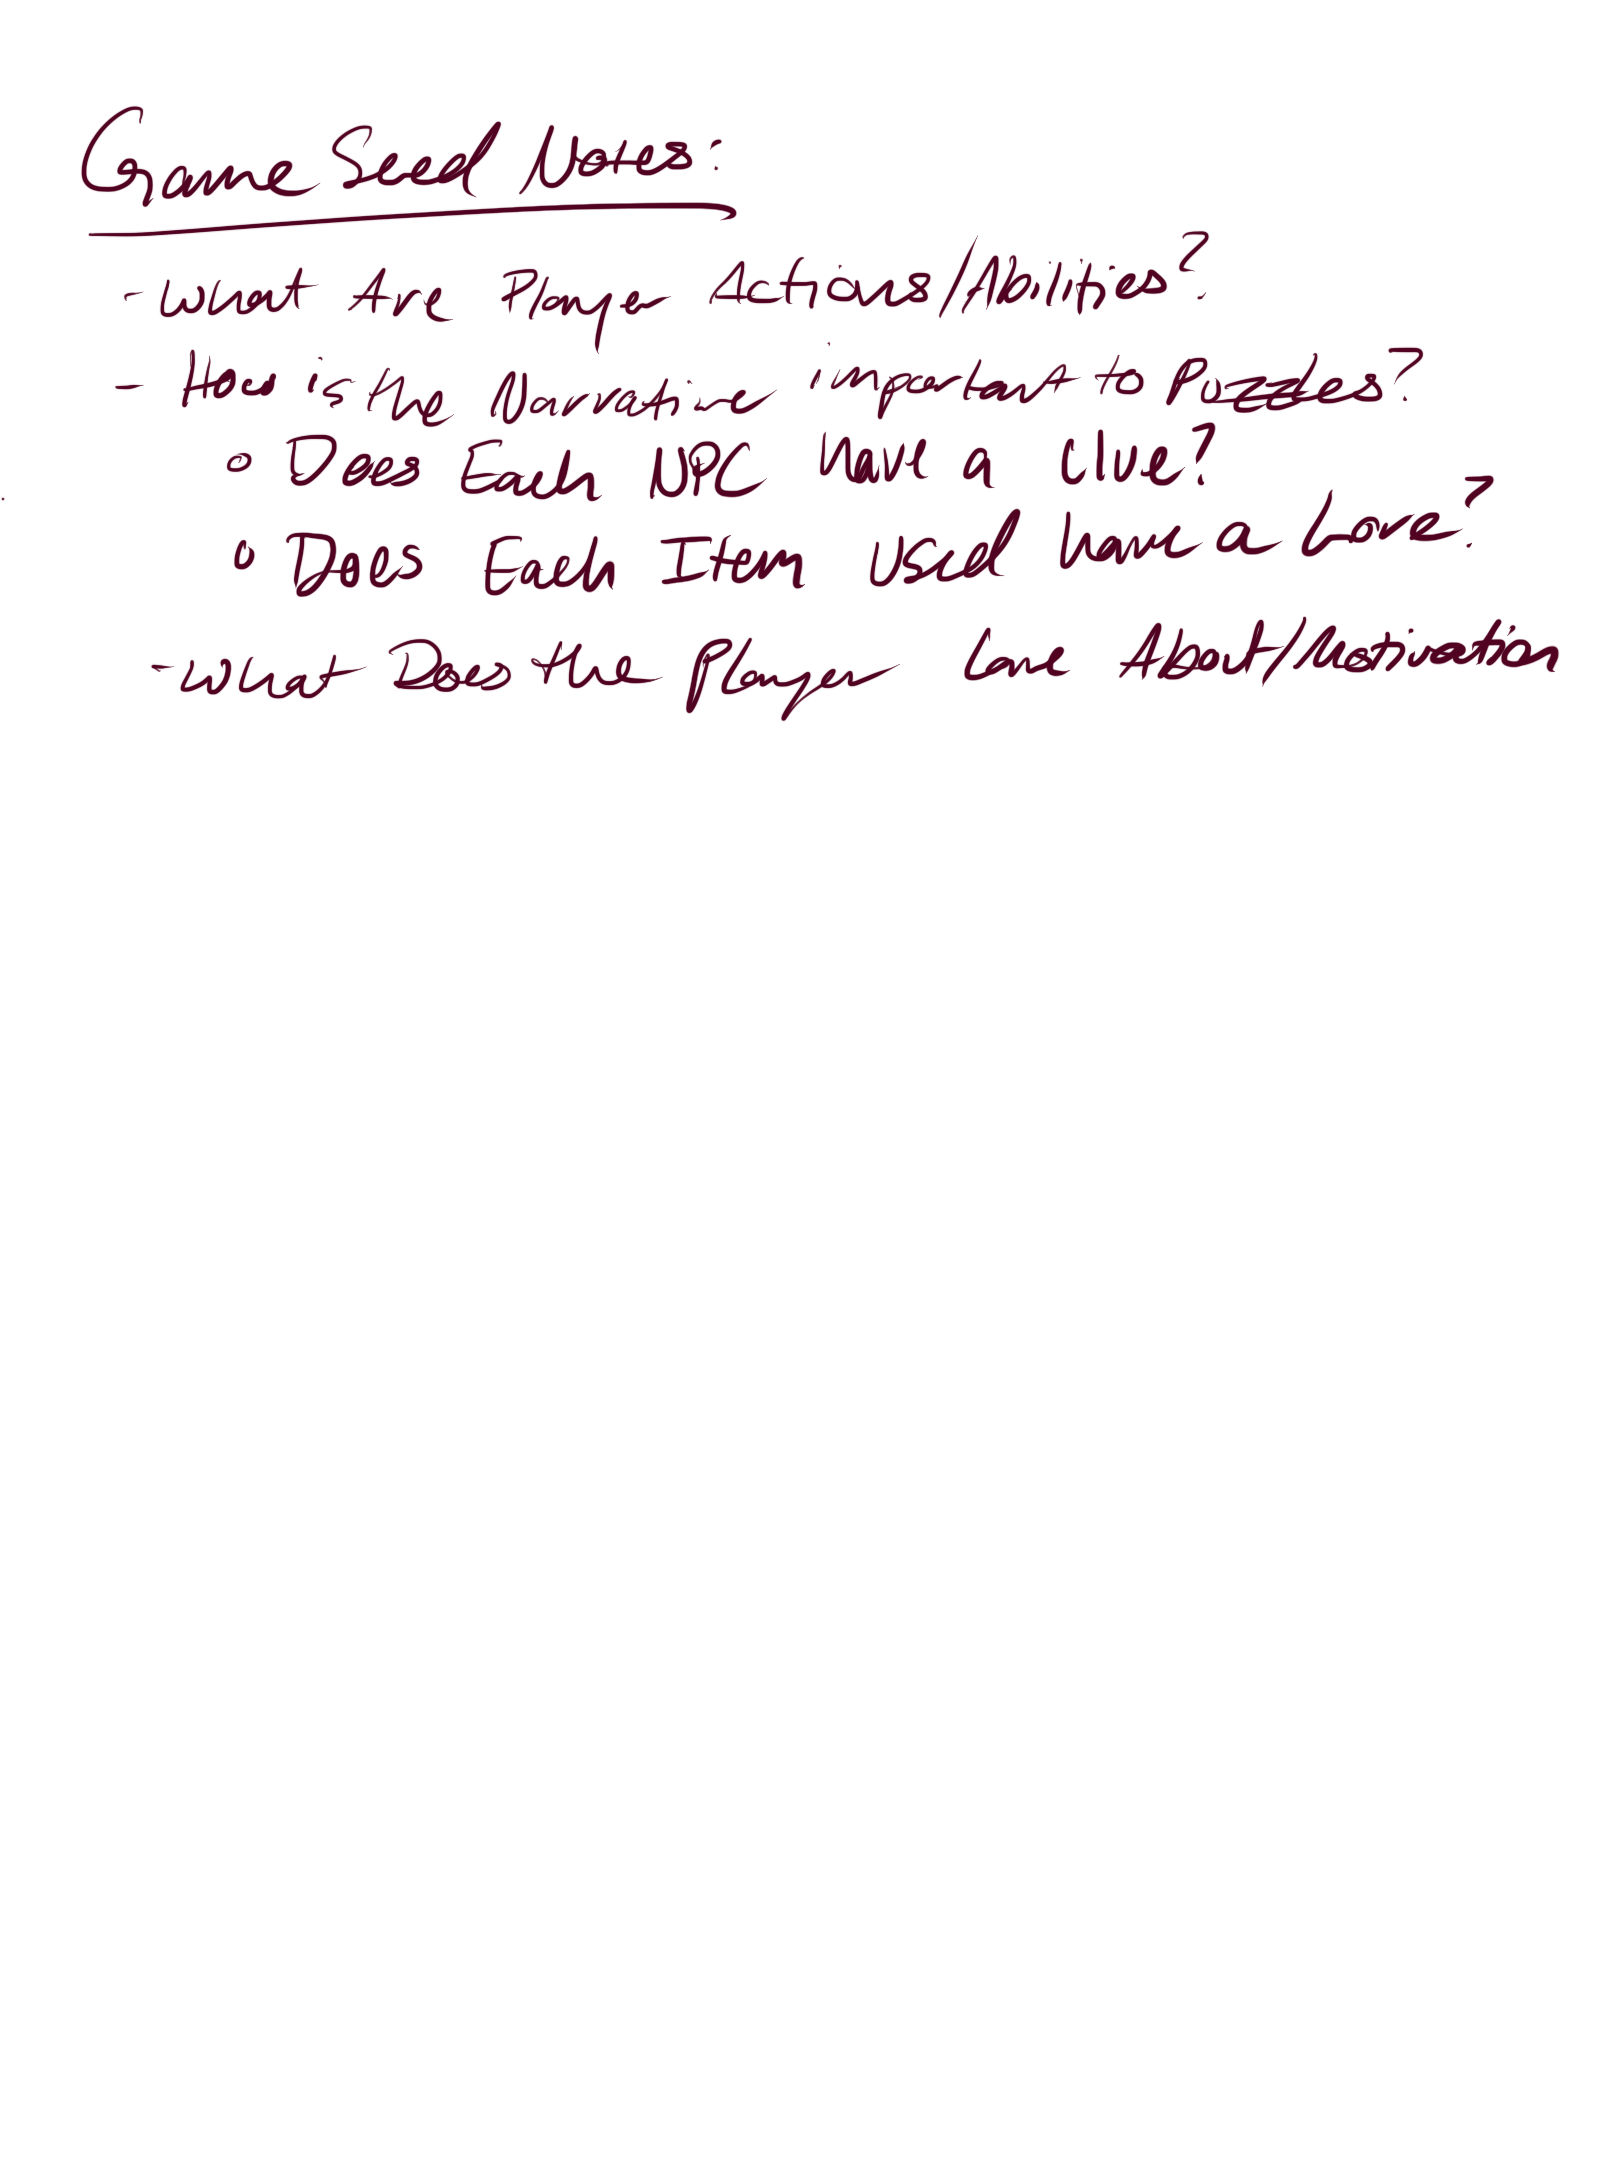 Game Seed Notes:
- What Are Player Actions/Abilities?
- How is the Narrative important to Puzzles?
o Does Each NPC have a Clue?
o Does Each Item Used have a Lore?
- What Does the Player Care About/Motivation